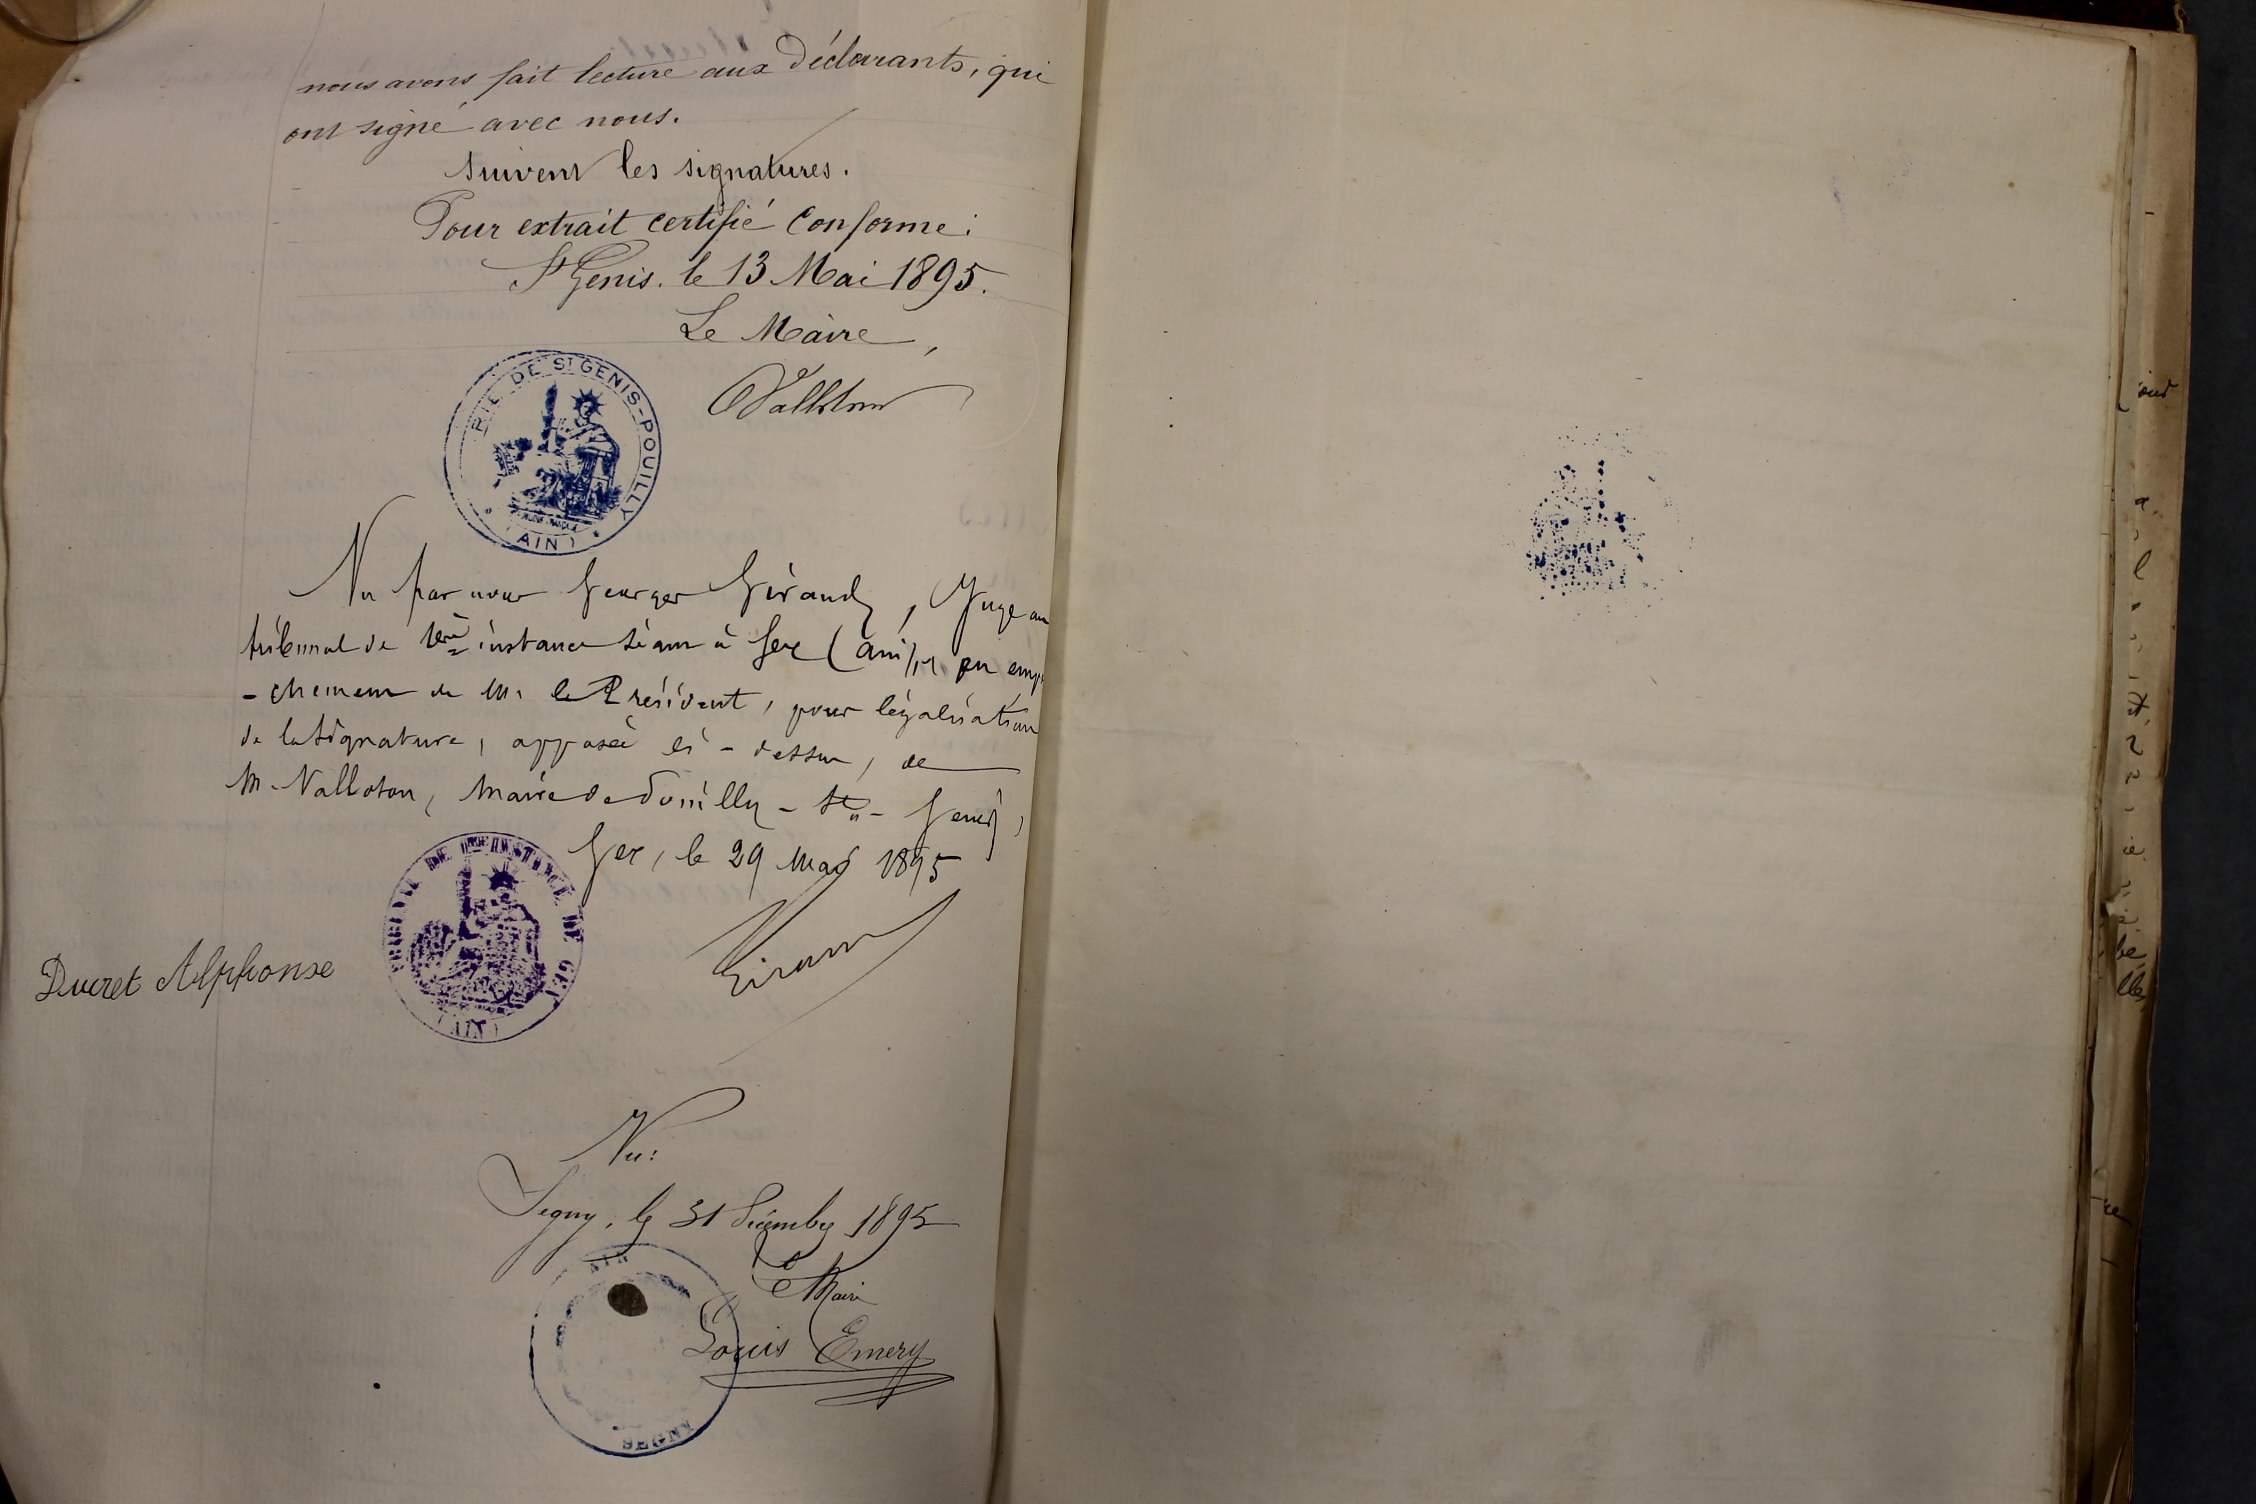 nous avons fait lecture aux Déclarants, qui
ont signé avec nous.
suivent les signatures.
Pour extrait certifié conforme:
St Genis. le 13 Mai 1895.
Le Maire,
Valloton
RIE DE ST GENIS-POUILLY
(AIN)
Vu par nous Georges Giraud, Juge au
tribunal de 1ère instance séant à Gex (Ain), en empê
-chement de Mr le Président, pour légalisation
de la signature, apposée ci-dessus, de
M. Valloton, Maire de Pouilly-St-Genis,
Gex, le 29 Mai 1895
TRIBUNAL DE 1ERE INSTANCE DE GEX
(AIN)
Giraud
Ducret Alphonse
Vu:
Segny, le 31 Décembre 1895
Le Maire
Louis Emery
AIN
SEGNY